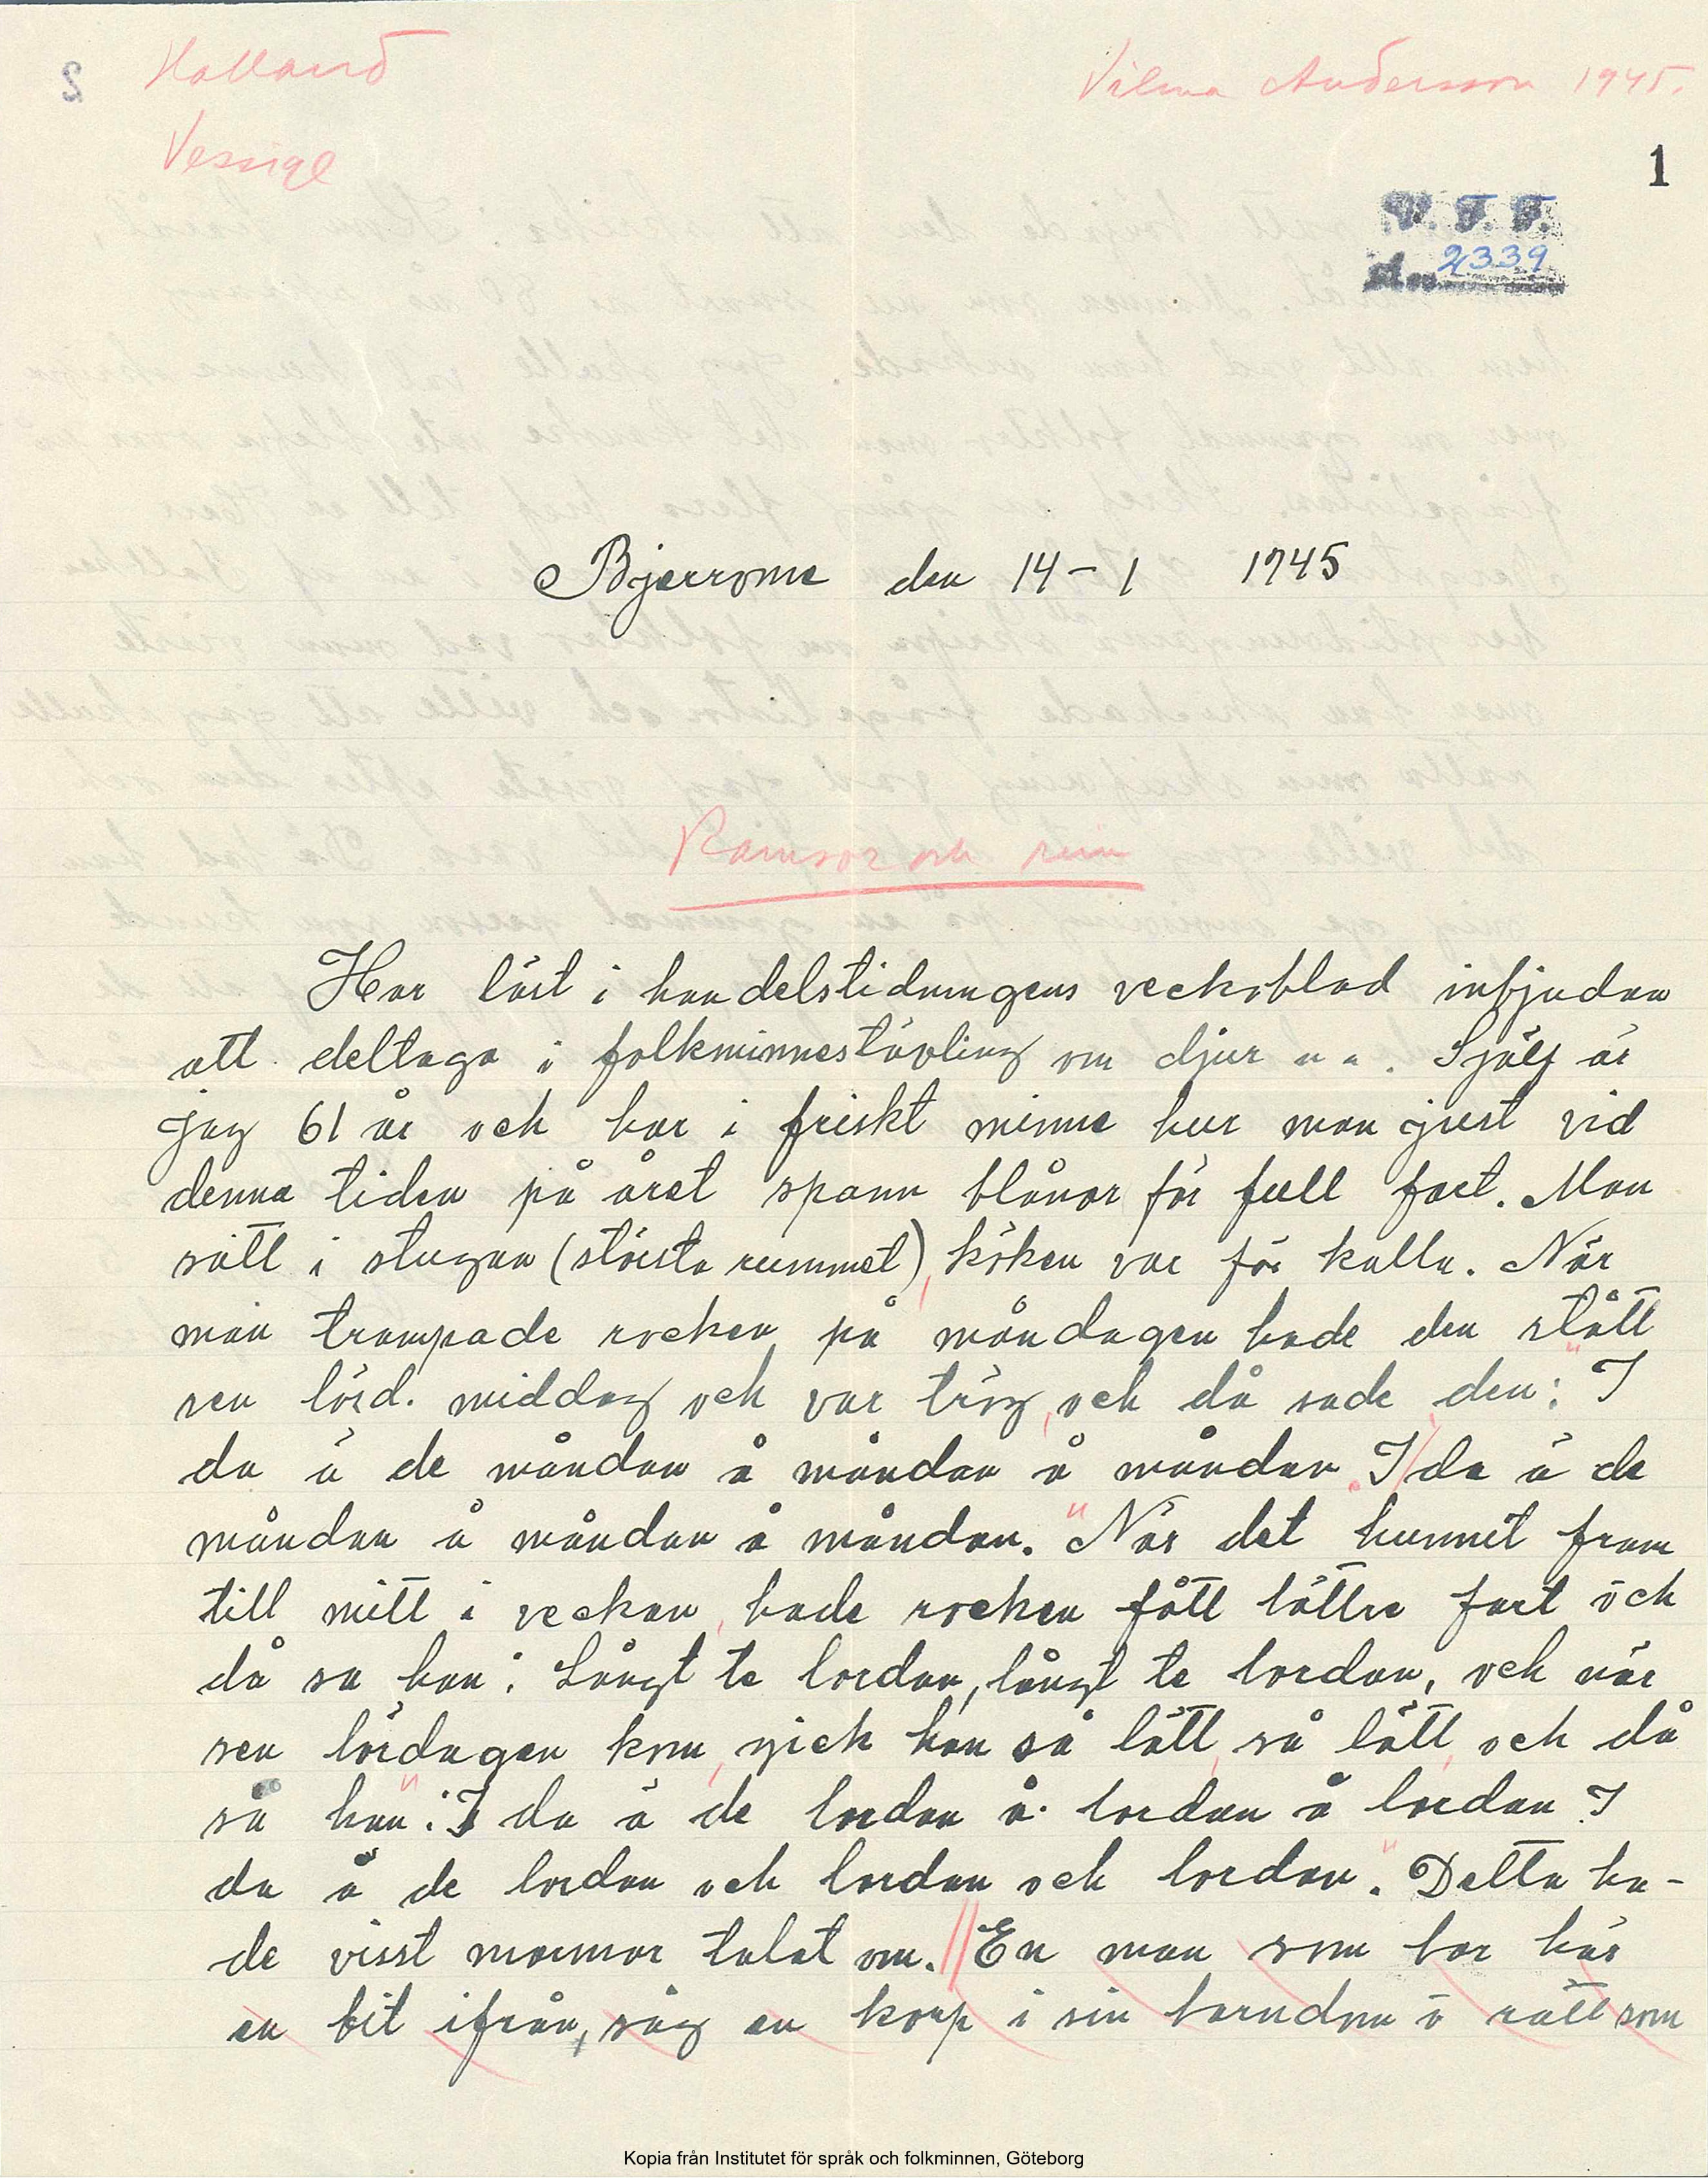 Halland
Vilma Andersson 1945.
Vessige
1
V. F. F.
2339
Bjerrome den 14-1 1945
Ramsor och rim
Har läst i handelstidningens veckoblad inbjudan
att deltaga i folkminnestävling om djur m m. Själf är
jag 61 år och har i friskt minne hur man just vid
denna tiden på året spann blånor för full fart. Man
satt i stugan (största rummet), köken var för kalla. När
man trampade rocken på måndagen hade den stått
sen lörd. middag och var trög, och då sade den: "I
da ä de måndan å måndan å måndan. I da ä de
måndan å måndan å måndan." När det hunnit fram
till mitt i veckan, hade rocken fått lättre fart och
då sa han: Långt te lordan, långt te lordan, och när
sen lördagen kom, gick han så lätt, så lätt, och då
sa han: "I da ä de lordan å lordan å lordan I
da ä de lordan och lordan och lordan". Detta ha-
de visst mormor talat om. // En man som bor här
en bit ifrån, såg en korp i sin barndom ö rätt som
Kopia från Institutet för språk och folkminnen, Göteborg